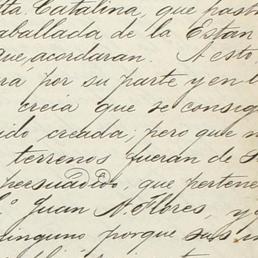 tta Catalina, que past
aballada de la Estan
que, acordaran. A esto,
ra por su parte y en l
creia que se consig
ido creada; pero que n
terrenos fueran de S
persuadido, que pertene
Juan N. Flores, y
ninguno porque sus in